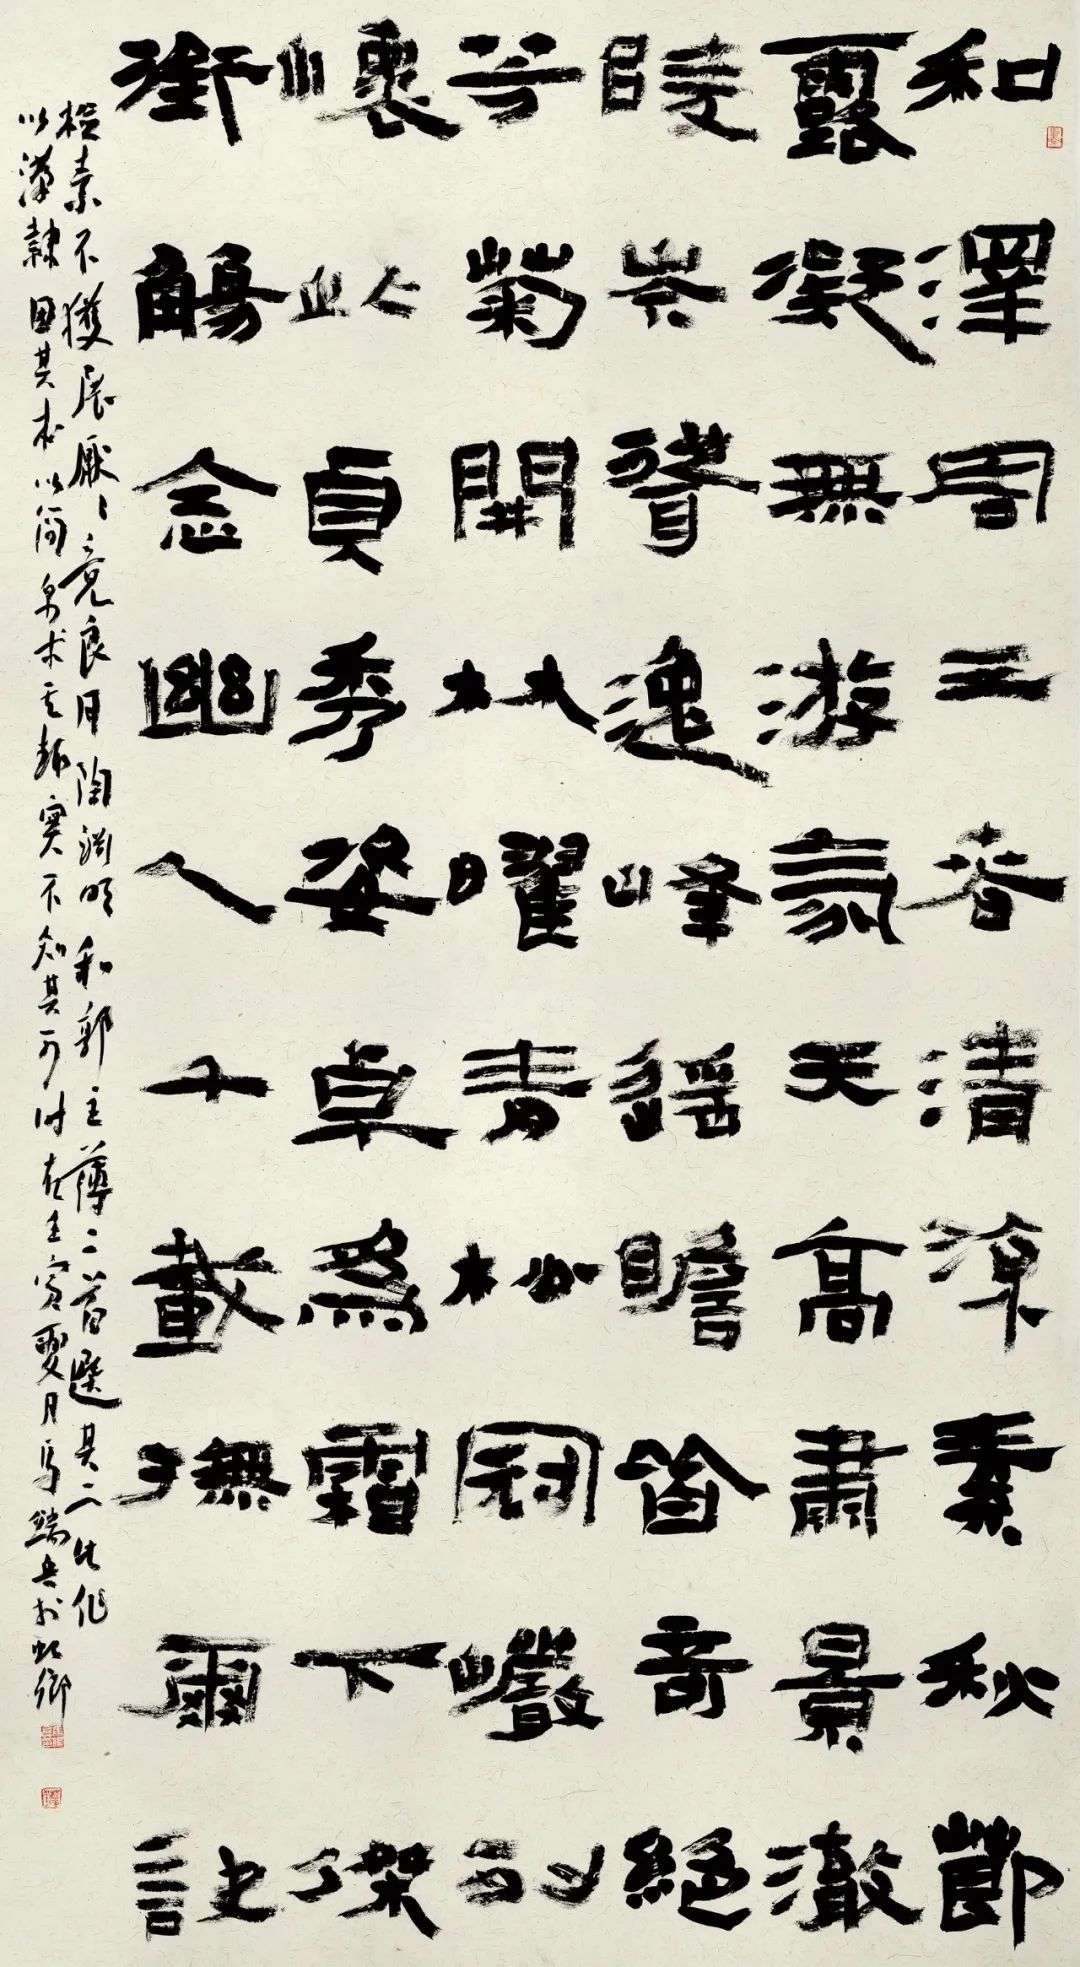 和澤周三春清涼素秋節
露凝無游氛天高肅景澈
陵岑聳逸峰遙瞻皆奇絕
芳菊開林曜青松冠巖列
懷此貞秀姿卓為霜下傑
銜觴念幽人千載撫爾訣
檢素不獲展厭〻竟良月陶淵明和郭主薄二首選其二此作
以漢隸固其本以簡帛求其趣實不知其可時在壬寅夏月馬端兵於虹鄉